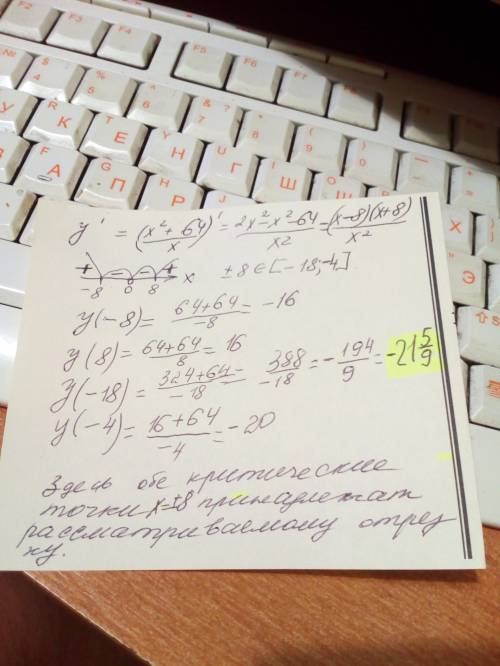 y' = (x² + 64 / x)' = 2x² - x² - 64 / x² = (x-8)(x+8) / x²
+ - - + x ± 8 ∈ [-18; -4]
-8 0 8
y(-8) = 64+64 / -8 = -16
y(8) = 64+64 / 8 = 16
y(-18) = 324+64 / -18 = 388 / -18 = - 194 / 9 = -21 5/9
y(-4) = 16+64 / -4 = -20
Здесь обе критические
точки x=±8 принадлежат
рассматриваемому отрез
ку.